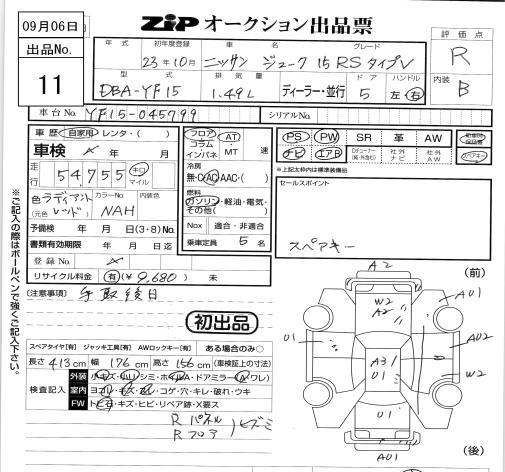 09月06日
出品No.
11
ZiP オークション出品票
年式 初年度登録 車名 グレード
23年10月 ニッサン ジューク 15RSタイプV
型式 排気量 ドア ハンドル
DBA-YF15 1.49L ディーラー・並行 5 左・右
評価点
R
内装
B
車台No. YF15-045799 シリアルNo.
車歴 自家用・レンタ・( )
車検 年 月
走行 54,755 キロ マイル
色 ラディアント カラーNo. 内装色
(元色 レッド) NAH
予備検 年 月(3・8)No.
書類有効期限 年 月 日迄
登録No.
リサイクル料金 有(¥9,680) 無
フロア AT
コラム
インパネ ・MT 速
冷房
無・C・AC・AAC・( )
燃料
ガソリン・軽油・電気・
その他( )
Nox 適合・非適合
乗車定員 5名
PS PW SR 革 AW
ナビ エアB Dチューナー 社外ナビ 社外AW
スペアキー
※上記太枠内は標準装備品
セールスポイント
スペアキー
注意事項
初出品
スペアタイヤ[有] ジャッキ工具[有] AWロックキー[有] ある場合のみ○
長さ 413cm 幅 176cm 高さ 156cm (車検証上の寸法)
検査記入
外装
室内
FW
Rパネル
Rフロア ヒズミ
※ご記入の際はボールペンで強くご記入下さい。
(前)
A2
A01
W2
A2
01
A02
A31
01
W2
01
A01
(後)